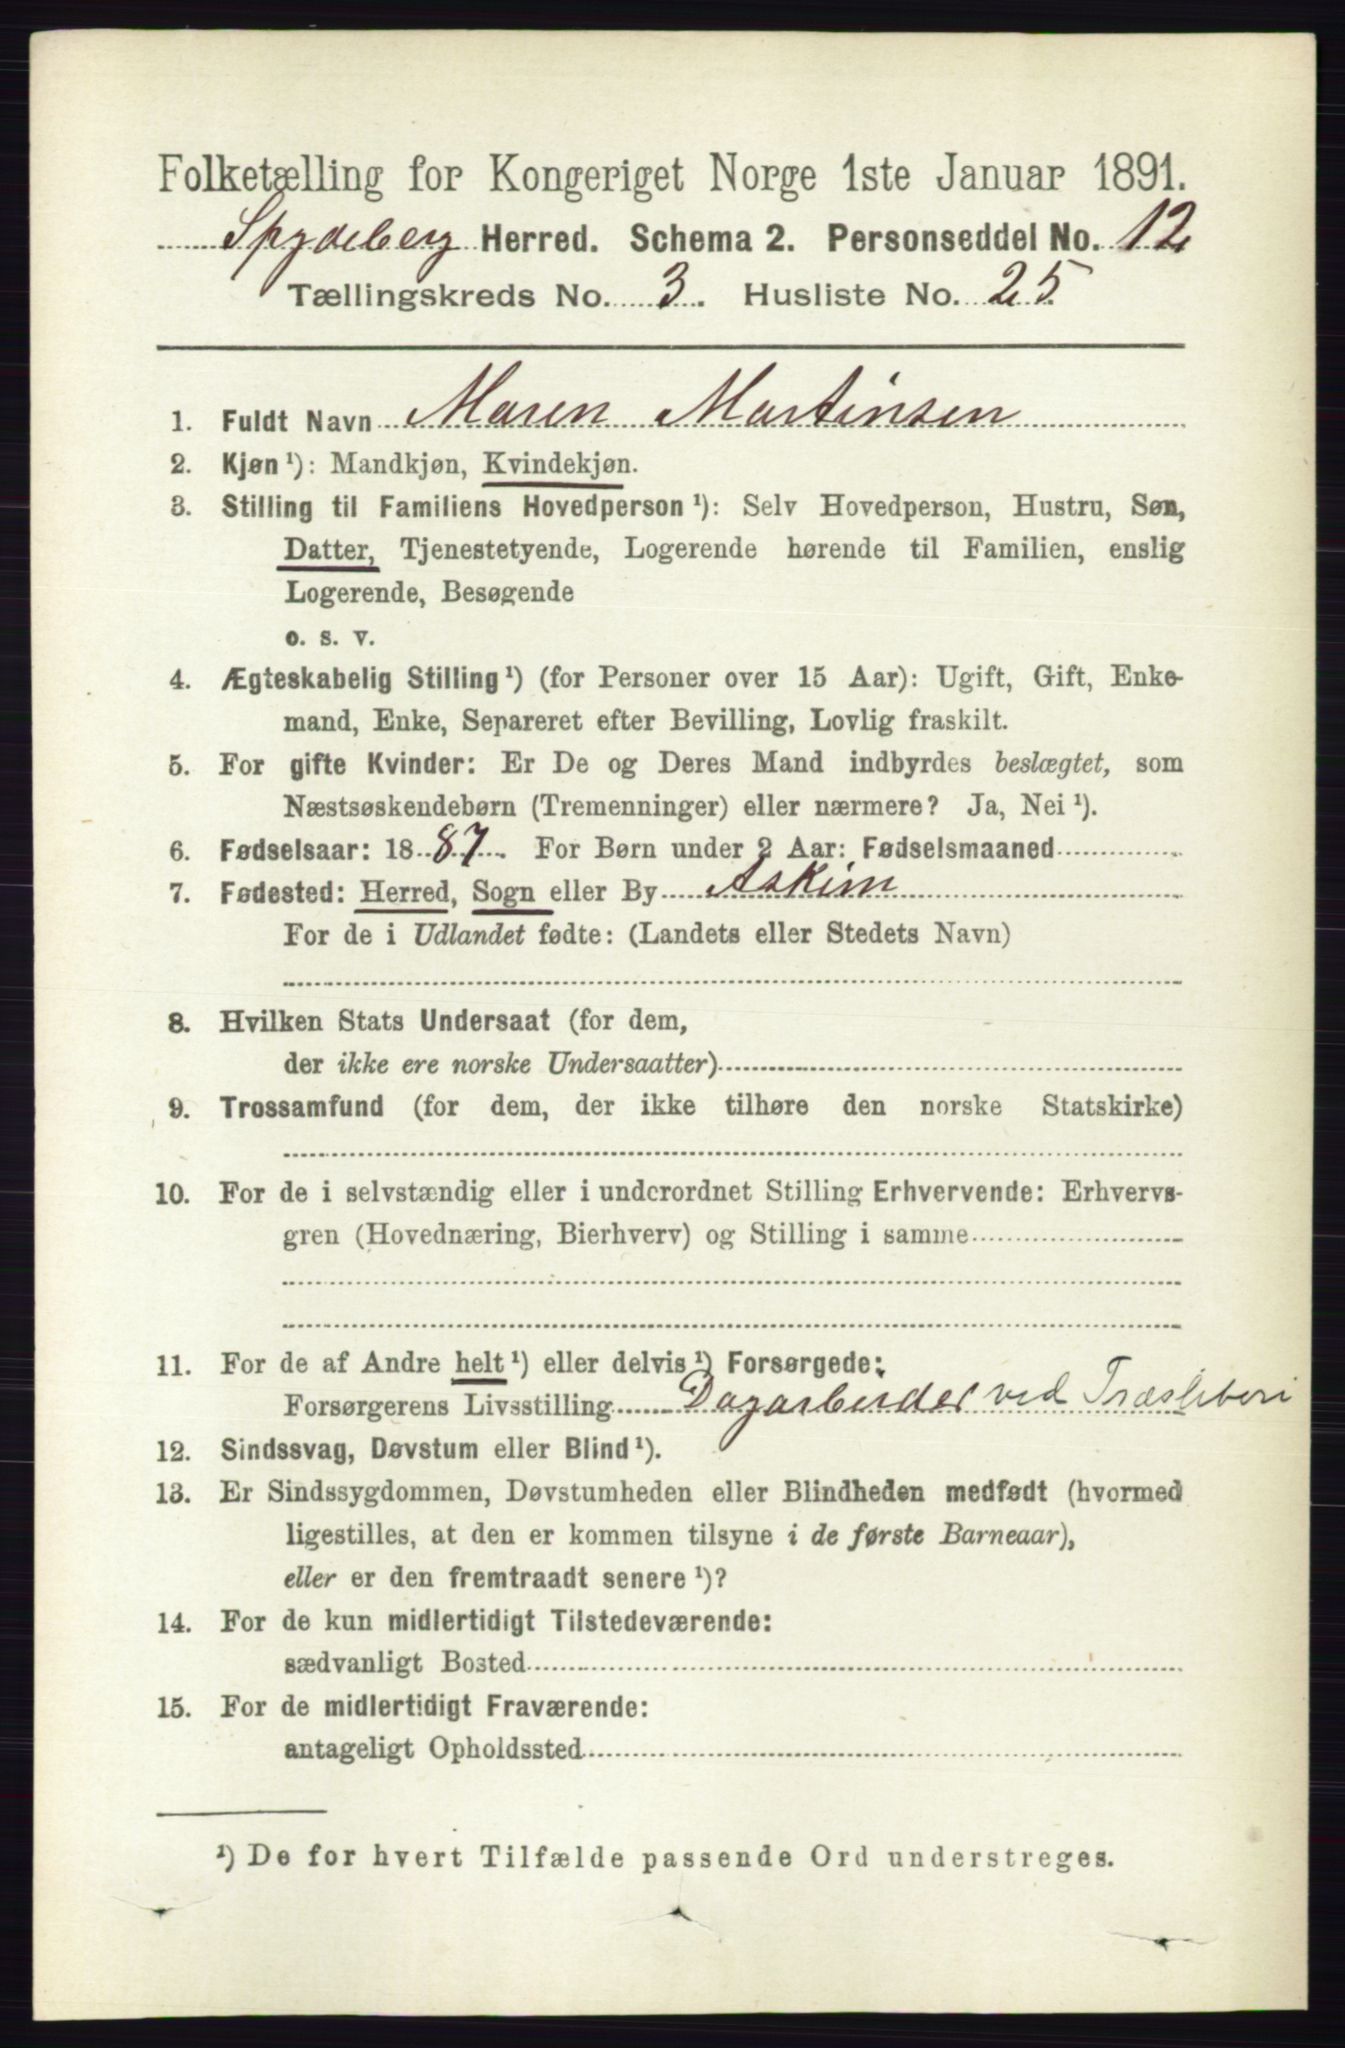 Folketælling for Kongeriget Norge 1ste Januar 1891.
Spydeberg Herred. Schema 2. Personseddel No. 12
Tællingskreds No. 3. Husliste No. 25
1. Fuldt Navn Maren Martinsen
2. Kjøn¹): Mandkjøn, Kvindekjøn.
3. Stilling til Familiens Hovedperson¹): Selv Hovedperson, Hustru, Søn,
Datter, Tjenestetyende, Logerende hørende til Familien, enslig
Logerende, Besøgende
o. s. v.
4. Ægteskabelig Stilling¹) (for Personer over 15 Aar): Ugift, Gift, Enke-
mand, Enke, Separeret efter Bevilling, Lovlig fraskilt.
5. For gifte Kvinder: Er De og Deres Mand indbyrdes beslægtet, som
Næstsøskendebørn (Tremenninger) eller nærmere? Ja, Nei¹).
6. Fødselsaar: 1887. For Børn under 2 Aar: Fødselsmaaned
7. Fødested: Herred, Sogn eller By Askim
For de i Udlandet fødte: (Landets eller Stedets Navn)
8. Hvilken Stats Undersaat (for dem,
der ikke ere norske Undersaatter)
9. Trossamfund (for dem, der ikke tilhøre den norske Statskirke)
10. For de i selvstændig eller i underordnet Stilling Erhvervende: Erhvervs-
gren (Hovednæring, Bierhverv) og Stilling i samme
11. For de af Andre helt¹) eller delvis¹) Forsørgede:
Forsørgerens Livsstilling Dagarbeider ved Træsliberi
12. Sindssvag, Døvstum eller Blind¹).
13. Er Sindssygdommen, Døvstumheden eller Blindheden medfødt (hvormed
ligestilles, at den er kommen tilsyne i de første Barneaar),
eller er den fremtraadt senere¹)?
14. For de kun midlertidigt Tilstedeværende:
sædvanligt Bosted
15. For de midlertidigt Fraværende:
antageligt Opholdssted
¹) De for hvert Tilfælde passende Ord understreges.